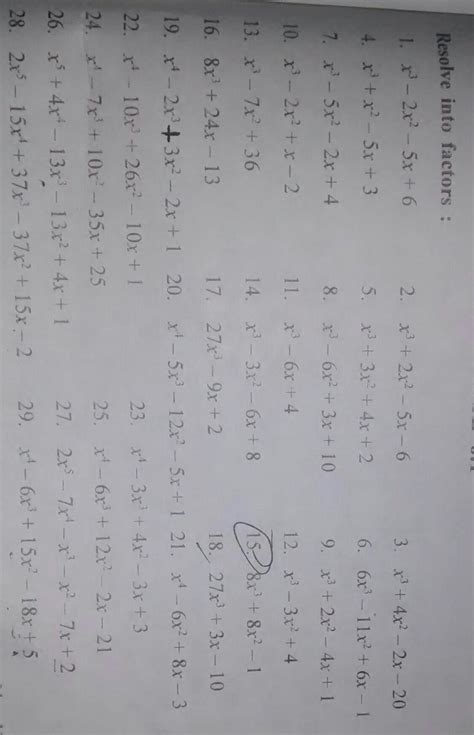 Resolve into factors :
1. x³ – 2x² – 5x + 6 2. x³ + 2x² – 5x – 6 3. x³ + 4x² – 2x – 20
4. x³ + x² – 5x + 3 5. x³ + 3x² + 4x + 2 6. 6x³ – 11x² + 6x – 1
7. x³ – 5x² – 2x + 4 8. x³ – 6x² + 3x + 10 9. x³ + 2x² – 4x + 1
10. x³ – 2x² + x – 2 11. x³ – 6x + 4 12. x³ – 3x² + 4
13. x³ – 7x² + 36 14. x³ – 3x² – 6x + 8 15. 8x³ + 8x² – 1
16. 8x³ + 24x – 13 17. 27x³ – 9x + 2 18. 27x³ + 3x – 10
19. x⁴ – 2x³ + 3x² – 2x + 1 20. x⁴ – 5x³ – 12x² – 5x + 1 21. x⁴ – 6x² + 8x – 3
22. x⁴ – 10x³ + 26x² – 10x + 1 23. x⁴ – 3x³ + 4x² – 3x + 3
24. x⁴ – 7x³ + 10x² – 35x + 25 25. x⁴ – 6x³ + 12x² – 2x – 21
26. x⁵ + 4x⁴ – 13x³ – 13x² + 4x + 1 27. 2x⁵ – 7x⁴ – x³ – x² – 7x + 2
28. 2x⁵ – 15x⁴ + 37x³ – 37x² + 15x – 2 29. x⁴ – 6x³ + 15x² – 18x + 5